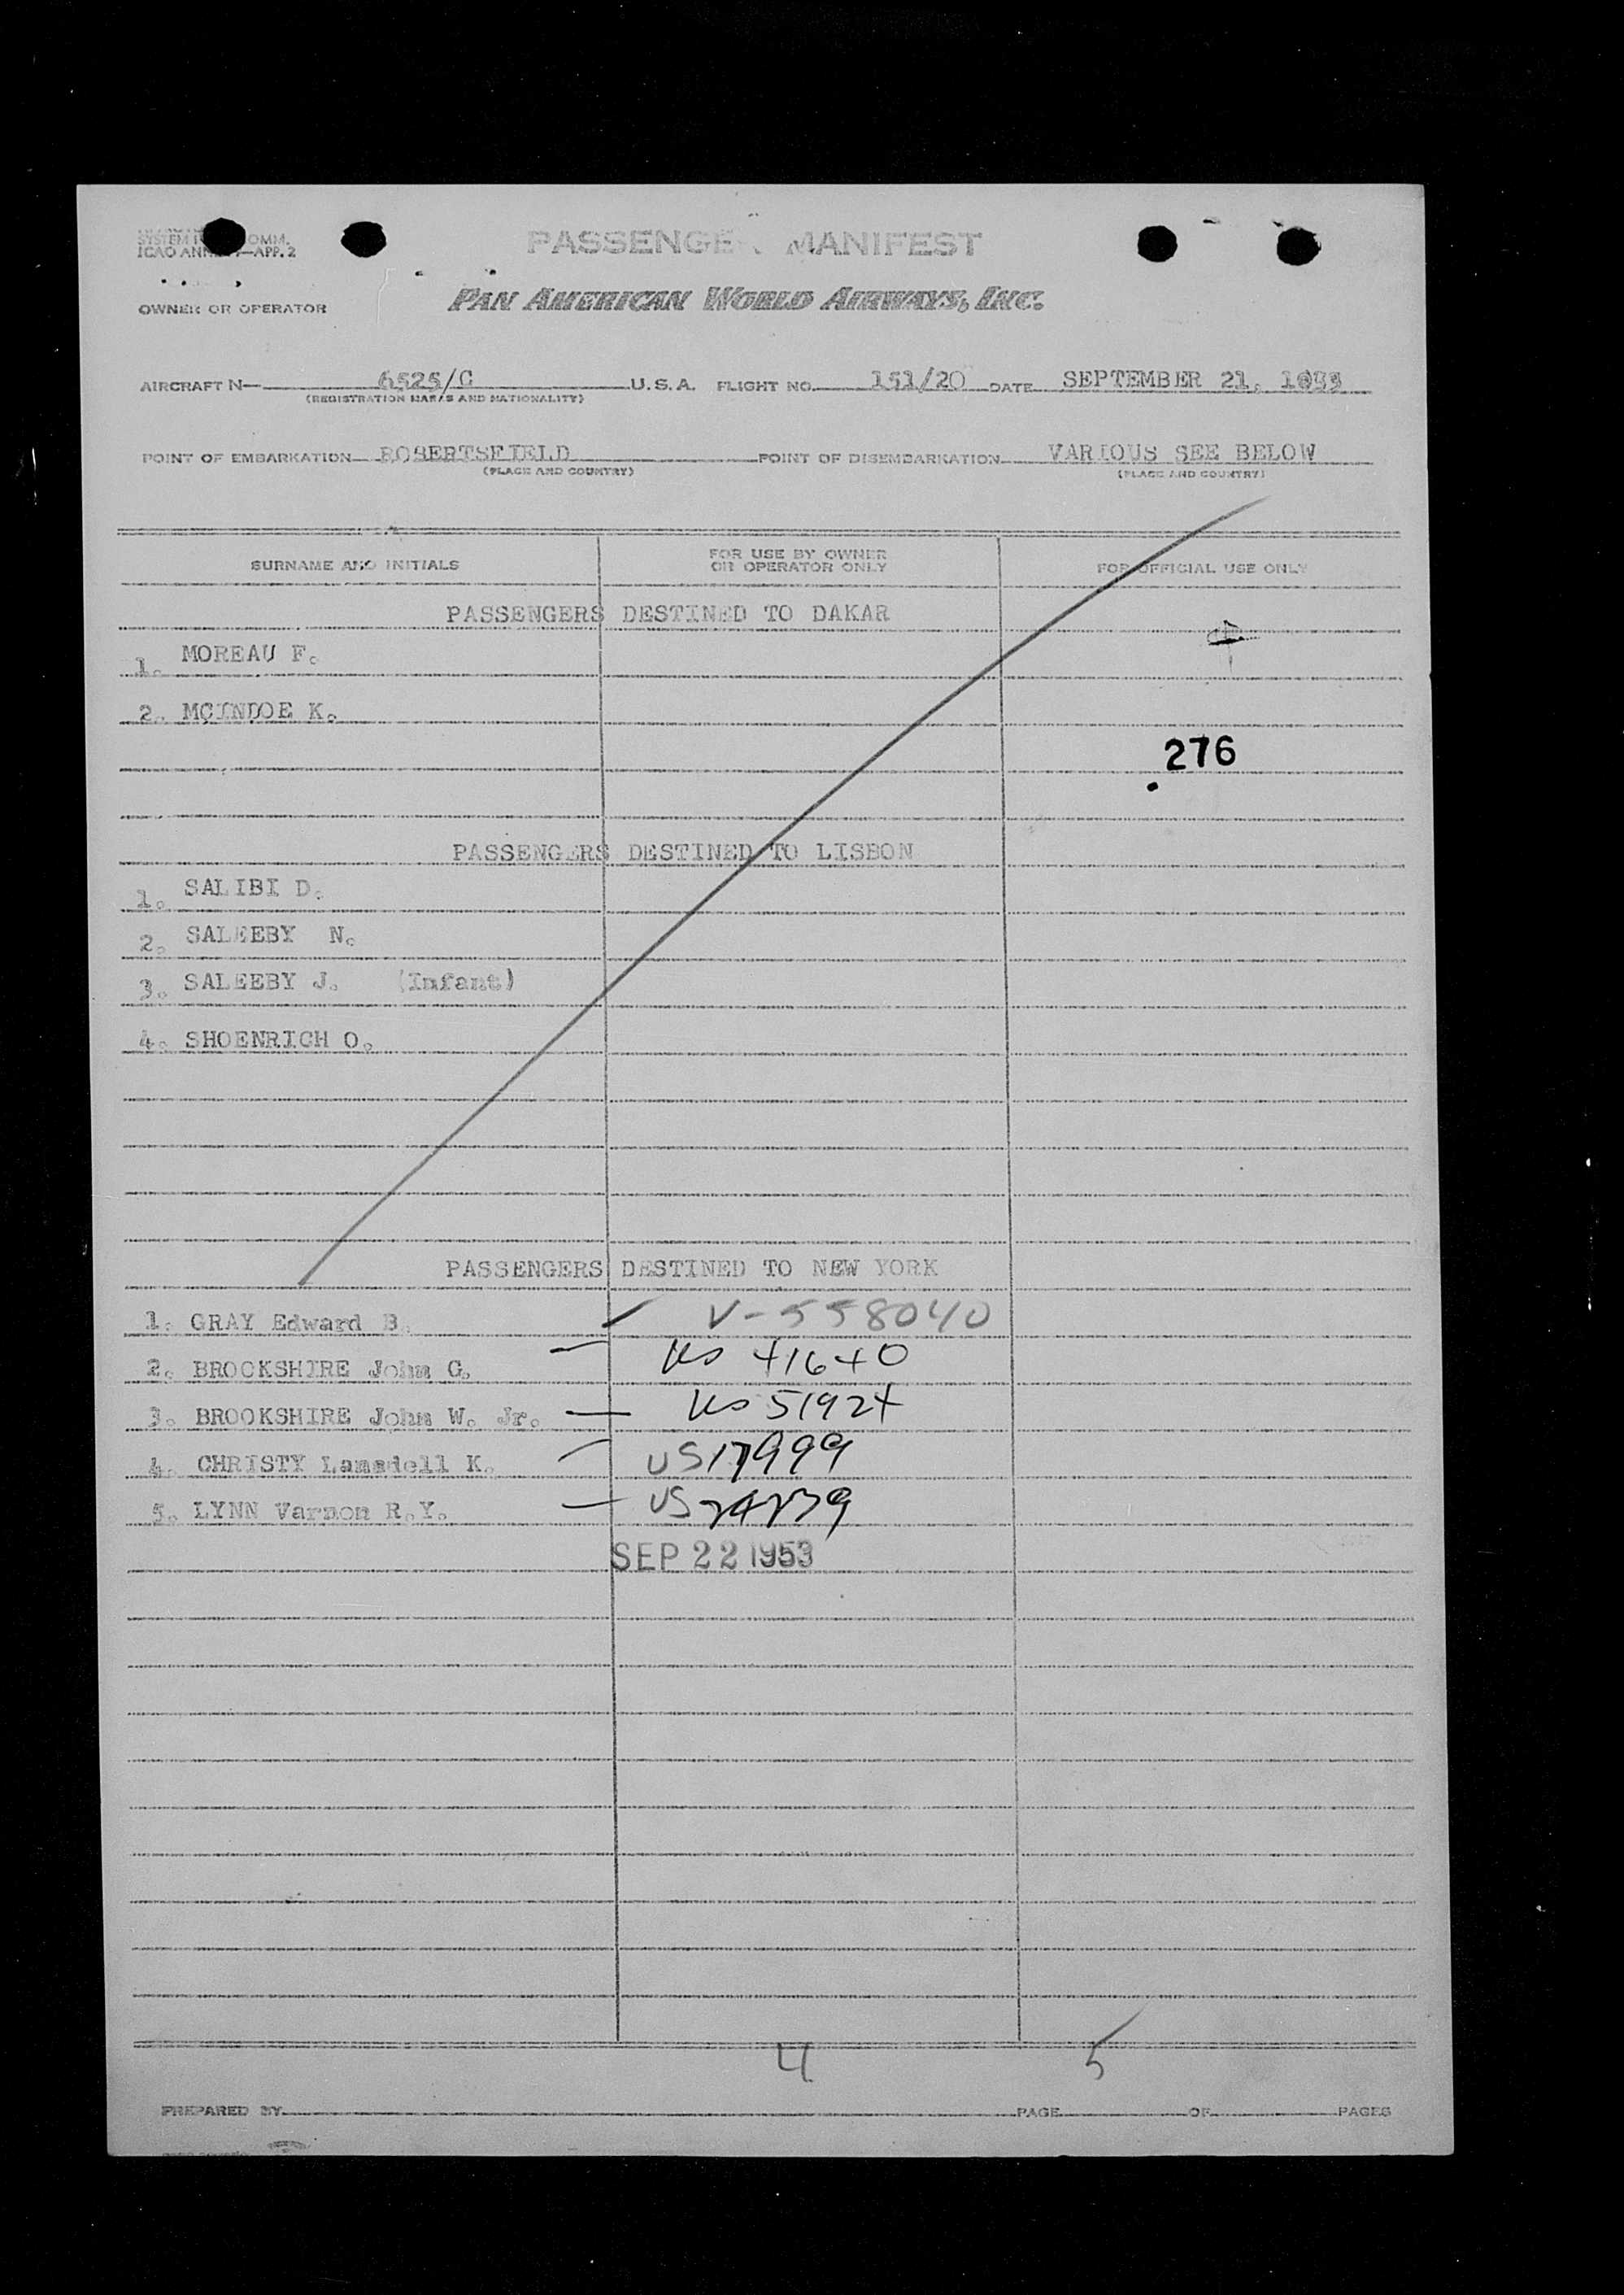 SYSTEM OMM.
ICAO ANN —APP. 2
PASSENGER MANIFEST
OWNER OR OPERATOR PAN AMERICAN WORLD AIRWAYS, INC.
AIRCRAFT N— 6525/C U.S.A. FLIGHT NO. 151/20 DATE SEPTEMBER 21, 1953
(REGISTRATION MARKS AND NATIONALITY)
POINT OF EMBARKATION ROBERTSFIELD POINT OF DISEMBARKATION VARIOUS SEE BELOW
(PLACE AND COUNTRY) (PLACE AND COUNTRY)
SURNAME AND INITIALS FOR USE BY OWNER OR OPERATOR ONLY FOR OFFICIAL USE ONLY
PASSENGERS DESTINED TO DAKAR
1. MOREAU F.
2. MCINDOE K.
276
PASSENGERS DESTINED TO LISBON
1. SALIBI D.
2. SALEEBY N.
3. SALEEBY J. (Infant)
4. SHOENRICH O.
PASSENGERS DESTINED TO NEW YORK
1. GRAY Edward B. V-558040
2. BROCKSHIRE John G. US 41640
3. BROOKSHIRE John W. Jr. US 51924
4. CHRISTY Lamsdell K. US 17999
5. LYNN Varnon R.Y. US
SEP 22 1953
4 5
PREPARED BY PAGE OF PAGES